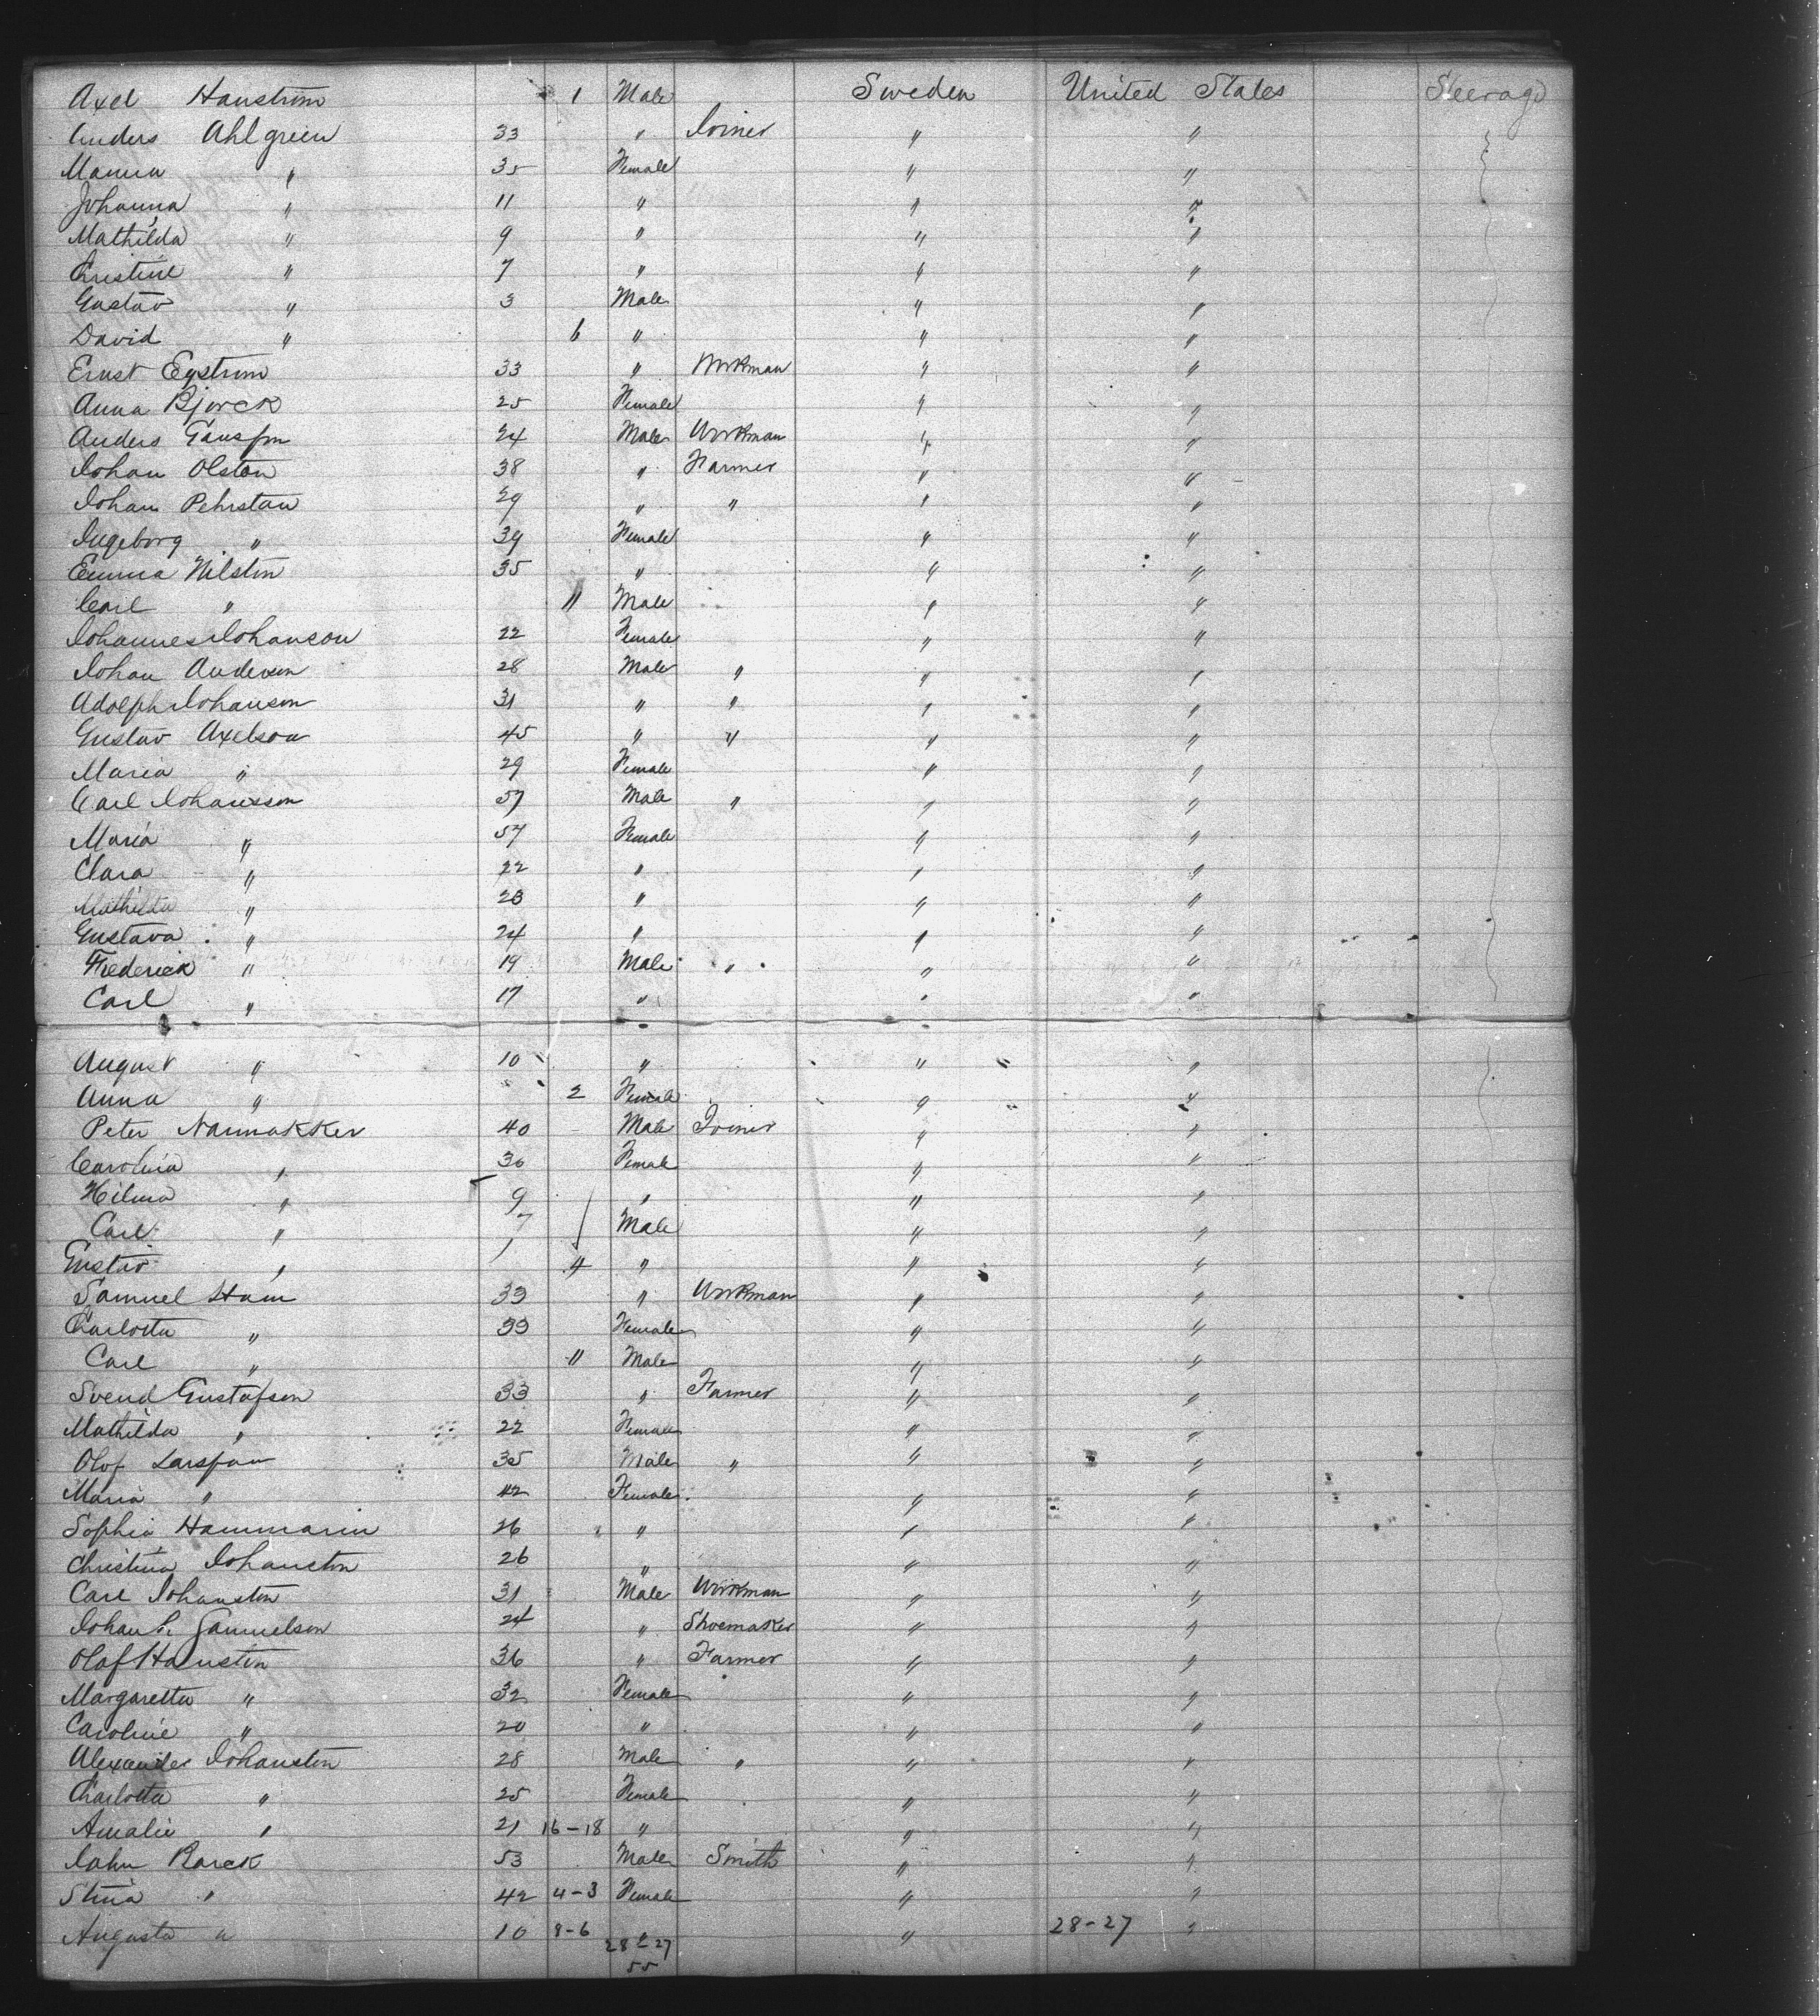 Axel Hanstrom 1 Male Sweden United States Steerage
Anders Ahlgreen 33 " Joiner " "
Manna " 35 Female " "
Johanna " 11 " " "
Mathilda " 9 " " "
Christine " 7 " " "
Gustav " 3 Male " "
David " 6 " " "
Ernst Egstrom 33 " Workman " "
Anna Bjorck 25 Female " "
Anders 24 Male Workman " "
Johan Olston 38 " Farmer " "
Johan Pehrstan 29 " " " "
Ingeborg " 39 Female " "
Emma Nilston 35 " " "
Carl " 11 Male " "
Johannes Johanson 22 Female " "
Johan Anderson 28 Male " " "
Adolph Johanson 31 " " " "
Gustav Axelson 45 " " " "
Maria " 29 Female " "
Carl Johansson 57 Male " " "
Maria " 57 Female " "
Clara " 22 " " "
Mathilda " 20 " " "
Gustava " 24 " " "
Frederick " 19 Male " " "
Carl " 17 " " "
August " 10 " " "
Anna " 2 Female " "
Peter Narmakker 40 Male Joiner " "
Carolina " 36 Female " "
Hilma " 9 " " "
Carl " 7 Male " "
Gustav " 1 4 " " "
Samuel Ham 33 " Workman " "
Charlotta " 33 Female " "
Carl " 11 Male " "
Svend Gustafson 33 " Farmer " "
Mathilda " 22 Female " "
Olof Larsson 35 Male " " "
Maria " 42 Female " "
Sophia Hammarin 26 " " "
Christina Johanston 26 " " "
Carl Johanston 31 Male Workman " "
Johan P. Samuelson 24 " Shoemaker " "
Olof Hanston 36 " Farmer " "
Margaretta " 32 Female " "
Caroline " 20 " " "
Alexander Johanston 28 Male " " "
Charlotta " 25 Female " "
Amalie " 21 16-18 " " "
John Borck 53 Male Smith " "
Stina " 42 4-3 Female " "
Augusta " 10 8-6 " " 28-27 "
28-27
55